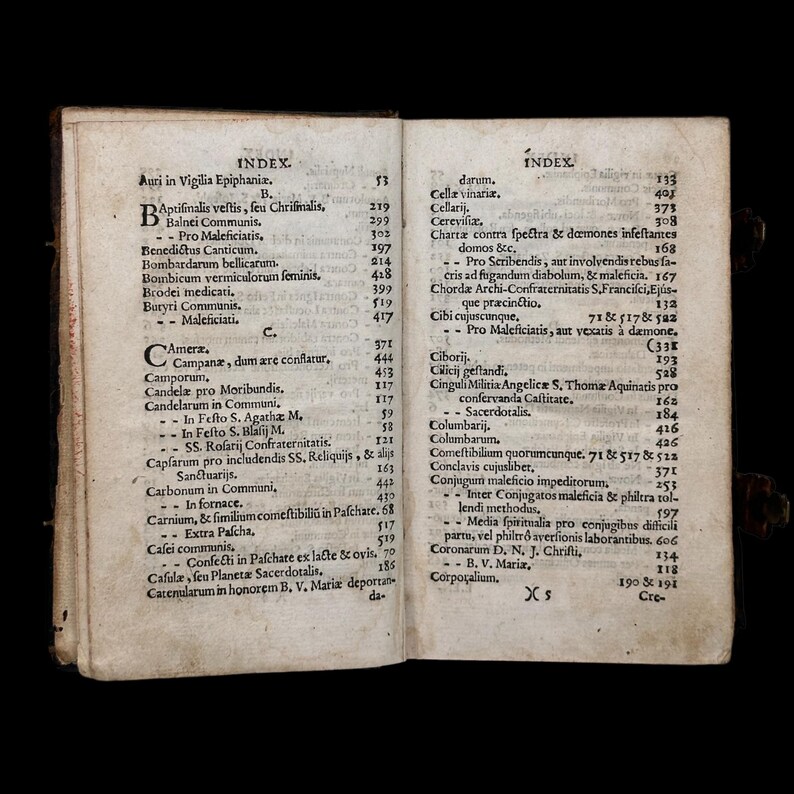 INDEX.
Auri in Vigilia Epiphaniæ. 53
B.
BAptiſmalis veſtis, ſeu Chriſmalis. 219
Balnei Communis. 299
- - Pro Maleficiatis. 302
Benedictus Canticum. 197
Bombardarum bellicarum. 214
Bombicum vermiculorum ſeminis. 428
Brodei medicati. 399
Butyri Communis. 519
- - Maleficiati. 417
C.
CAmeræ. 371
Campanæ, dum ære conflatur. 444
Camporum. 453
Candelæ pro Moribundis. 117
Candelarum in Communi. 117
- - In Feſto S. Agathæ M. 59
- - In Feſto S. Blaſij M. 58
- - SS. Roſarij Confraternitatis. 121
Capſarum pro includendis SS. Reliquijs, & alijs
Sanctuarijs. 163
Carbonum in Communi. 442
- - In fornace. 430
Carnium, & ſimilium comeſtibiliū in Paſchate. 68
- - Extra Paſcha. 517
Caſei communis. 519
- - Confecti in Paſchate ex lacte & ovis. 70
Caſulæ, ſeu Planetæ Sacerdotalis. 186
Catenularum in honorem B. V. Mariæ deportan-
da-
INDEX.
darum. 133
Cellæ vinariæ. 401
Cellarij. 373
Cereviſiæ. 308
Chartæ contra ſpectra & dœmones infeſtantes
domos &c. 168
- - Pro Scribendis, aut involvendis rebus ſa-
cris ad fugandum diabolum, & maleficia. 167
Chordæ Archi-Confraternitatis S. Franciſci, Ejùſ-
que præcinctio. 132
Cibi cujuscunque. 71 & 517 & 522
- - Pro Maleficiatis, aut vexatis à dæmone.
(331
Ciborij. 193
Cilicij geſtandi. 528
Cinguli Militiæ Angelicæ S. Thomæ Aquinatis pro
conſervanda Caſtitate. 162
- - Sacerdotalis. 184
Columbarij. 426
Columbarum. 426
Comeſtibilium quorumcunque. 71 & 517 & 522
Conclavis cujuslibet. 371
Conjugum maleficio impeditorum. 253
- - Inter Conjugatos maleficia & philtra tol-
lendi methodus. 597
- - Media ſpiritualia pro conjugibus difficili
partu, vel philtrô averſionis laborantibus. 606
Coronarum D. N. J. Chriſti. 134
- - B. V. Mariæ. 118
Corporalium. 190 & 191
)( 5 Cre-